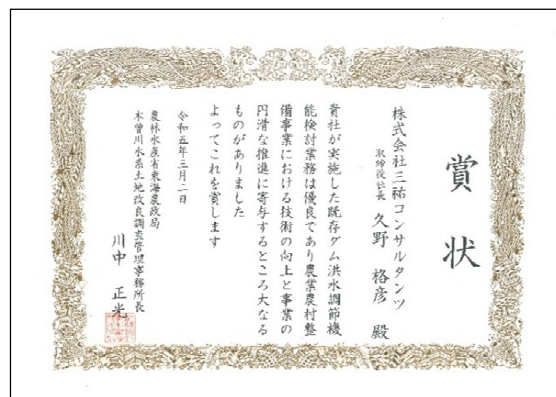 賞状
株式会社三祐コンサルタンツ
取締役社長 久野格彦 殿
貴社が実施した既存ダム洪水調節機
能検討業務は優良であり農業農村整
備事業における技術の向上と事業の
円滑な推進に寄与するところ大なる
ものがありました
よってこれを賞します
令和五年三月二日
農林水産省東海農政局
木曽川水系土地改良調査管理事務所長
川中正光